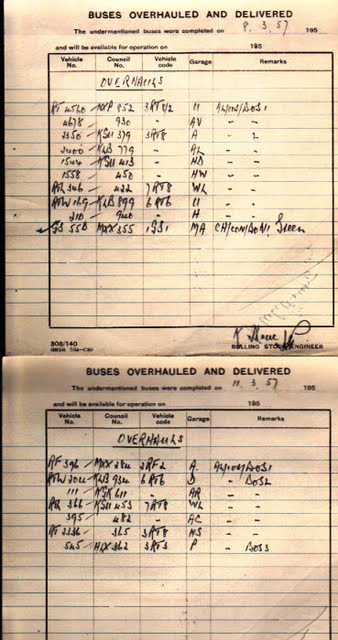 BUSES OVERHAULED AND DELIVERED
The undermentioned buses were completed on 8.3.57 195
and will be available for operation on 195
Vehicle No. Council No. Vehicle code Garage Remarks
OVERHAULS
RT 4560 NXP 852 3RT8/2 U
4678 - 930 - AV - -
2350 KGU 379 3RT8 A - 2
KLB 779 - AL - -
1544 KGU 413 - HD - -
1558 - 450 - HW - -
422 7RT8 WL - -
RTW 169 KLB 899 6RT6 U - -
210 - 940 - H - -
GS 55 MXX 355 1GS1 MA Green
ROLLING STOCK ENGINEER
808/140
BUSES OVERHAULED AND DELIVERED
The undermentioned buses were completed on 11.3.57 195
and will be available for operation on 195
Vehicle No. Council No. Vehicle code Garage Remarks
OVERHAULS
RF 396 MXX 284 2RF2 A.
RTW 204 KLB 934 6RT6 D - BOS2
111 - KGK 611 - AR - -
366 KGU 453 7RT8 WL - -
395 - 482 - AC - -
RT 2336 - 365 3RT8 NS - -
545 HLX 362 3RT3 P - BOS3